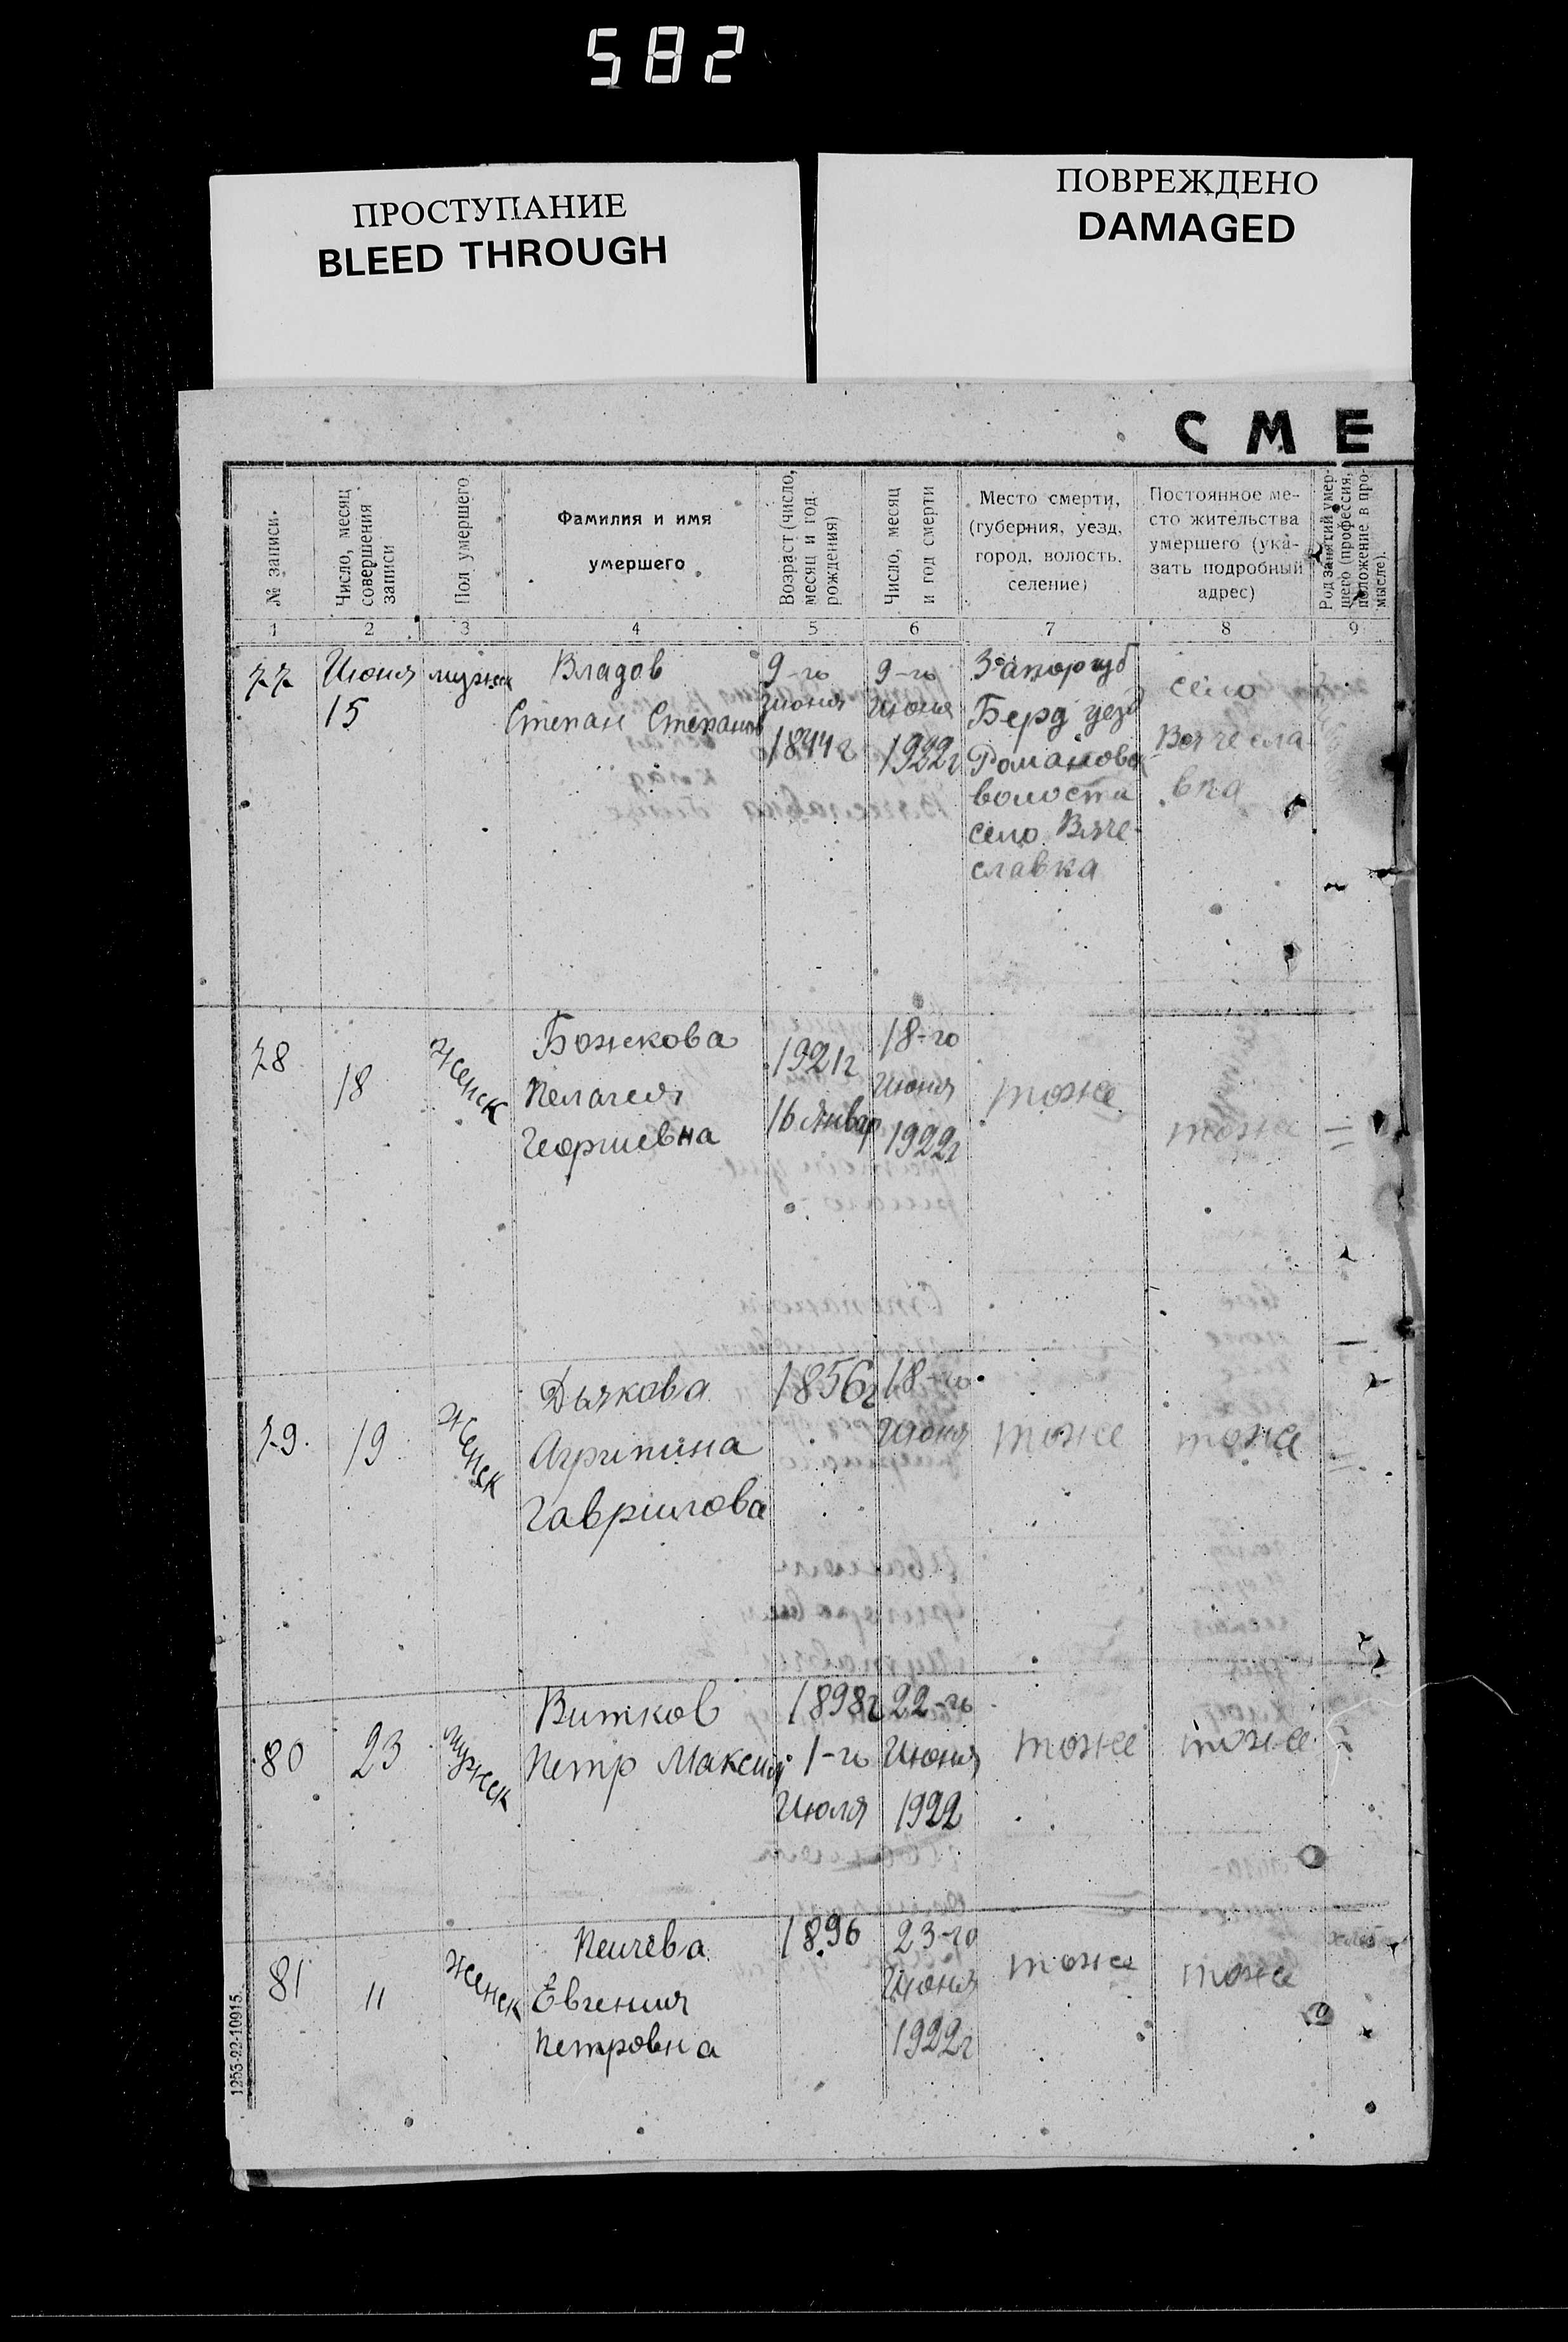 582
ПРОСТУПАНИЕ
BLEED THROUGH
ПОВРЕЖДЕНО
DAMAGED
СМЕ
№ записи.
Число, месяц
совершения
записи
Пол умершего
Фамилия и имя
умершего
Возраст (число,
месяц и год
рождения)
Число, месяц
и год смерти
Место смерти,
(губерния, уезд,
город, волость,
селение)
Постоянное ме-
сто жительства
умершего (ука-
зать подробный
адрес)
Род занятий умер-
шего (профессия,
положение в про-
мысле).
1 2 3 4 5 6 7 8 9
77
Июня
15
мужск
Владов
Степан Степанов
9-го
июня
1844г
9-го
Июня
1922г
Запор губ
Берд уезд
Романово
волости
село Вяче-
славка
село
Вячесла
вка
78
18
женск
Божкова
Пелагея
Георгиевна
1921г
16 Январ
18-го
Июня
1922г
тоже
тоже
79.
19
женск
Дьякова
Агрипина
Гаврилова
1856г
18-го
Июня
тоже
тоже
80
23
мужск
Витков
Петр Максим
1898г
1-го
Июля
22-го
Июня
1922
тоже
тоже
81
"
женск
Пейчева
Евгения
Петровна
1896
23-го
Июня
1922г
тоже
тоже
1253-22-10915.